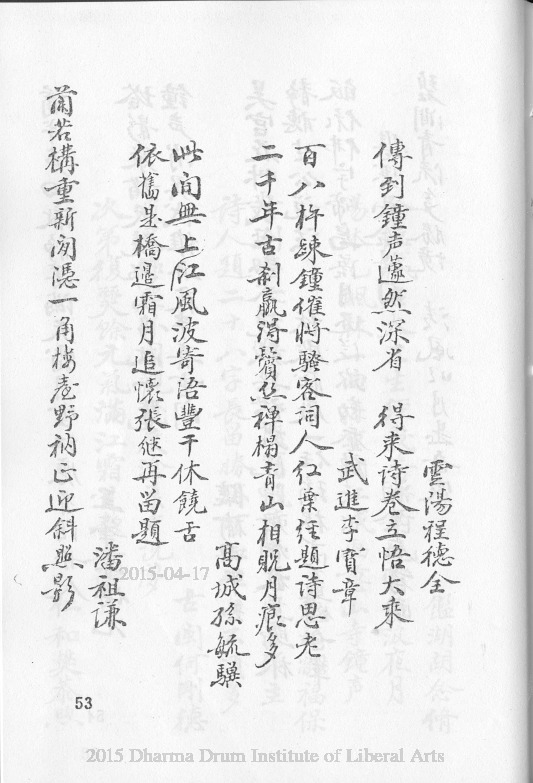 雲陽程德全
傳到鐘声蘧然深省 得来诗卷立悟大乘
武進李寶章
百八杵疎鐘催將騷客词人红葉经題诗思老
二千年古刹贏得鬢丝禅榻青山相貺月痕多
高城孫毓驥
此间無上江風波寄语豐干休饒舌
依舊是橋邉霜月追懷張继再留題
潘祖谦
蘭若構重新闲憑一角楼臺野衲正迎斜照影
53
2015-04-17
2015 Dharma Drum Institute of Liberal Arts